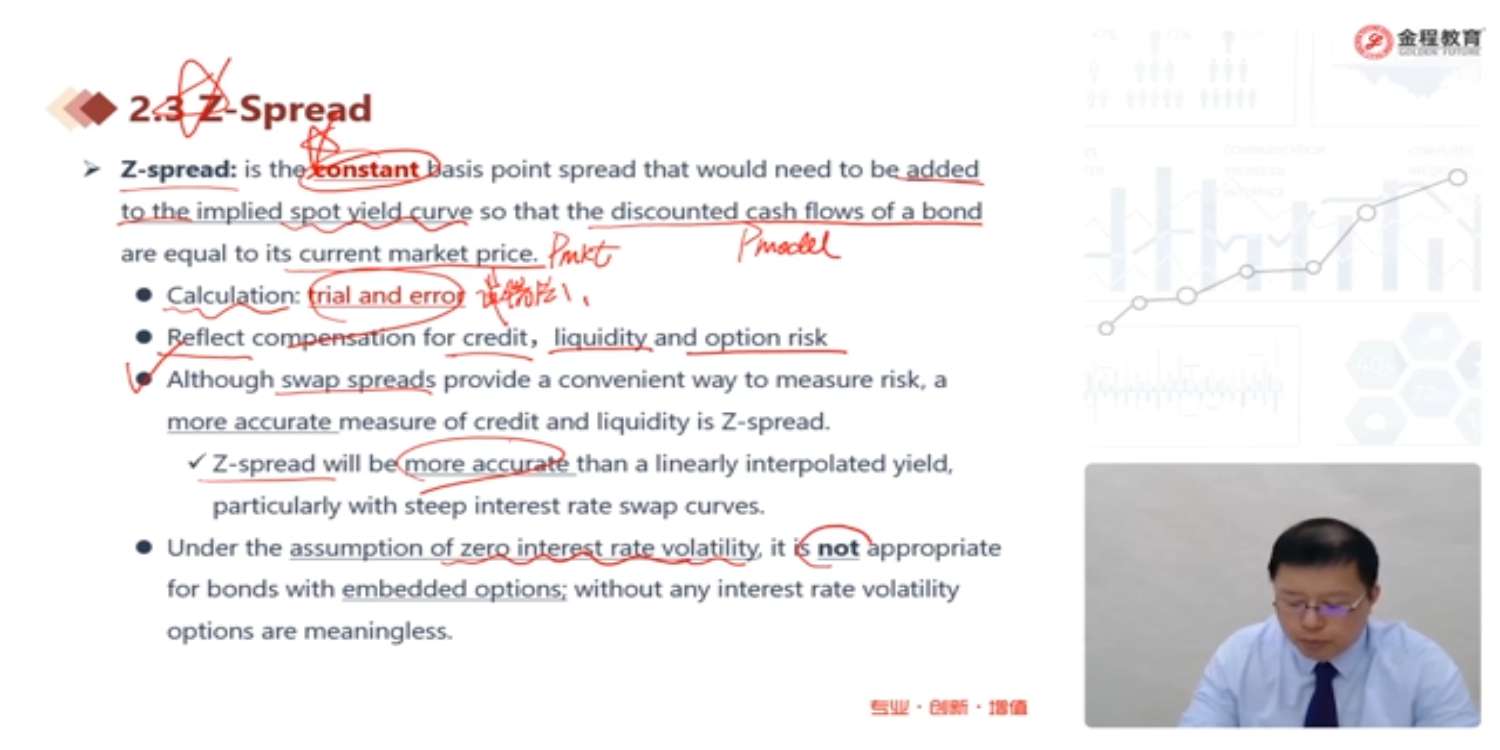 金程教育
GOLDEN FUTURE
2.3 Z-Spread
Z-spread: is the constant basis point spread that would need to be added
to the implied spot yield curve so that the discounted cash flows of a bond
are equal to its current market price. Pmkt Pmodel
Calculation: trial and error
Reflect compensation for credit, liquidity and option risk
Although swap spreads provide a convenient way to measure risk, a
more accurate measure of credit and liquidity is Z-spread.
✓ Z-spread will be more accurate than a linearly interpolated yield,
particularly with steep interest rate swap curves.
Under the assumption of zero interest rate volatility, it is not appropriate
for bonds with embedded options; without any interest rate volatility
options are meaningless.
专业·创新·增值